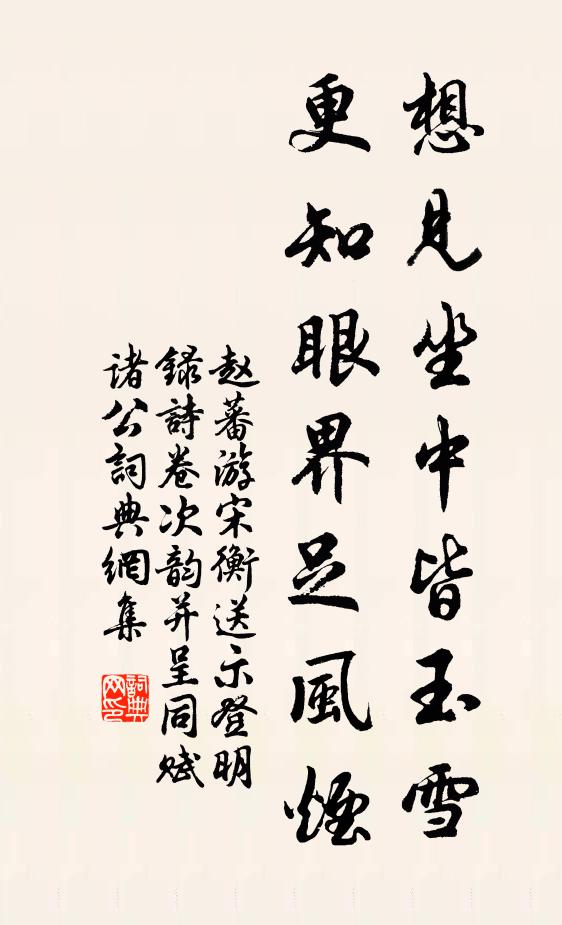 想見坐中皆玉雪
更知眼界足風煙
赵蕃游宋衡送示登明
録詩卷次韵并呈同赋
诸公詞典網集
詞典
网印